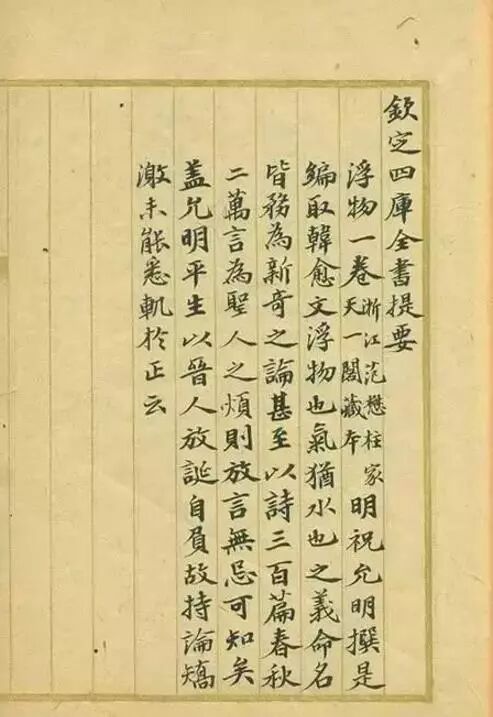 欽定四庫全書提要
浮物一卷浙江范懋柱家天一閣藏本明祝允明撰是
編取韓愈文浮物也氣猶水也之義命名
皆務為新奇之論甚至以詩三百篇春秋
二萬言為聖人之煩則放言無忌可知矣
蓋允明平生以晉人放誕自負故持論矯
激未能悉軌於正云